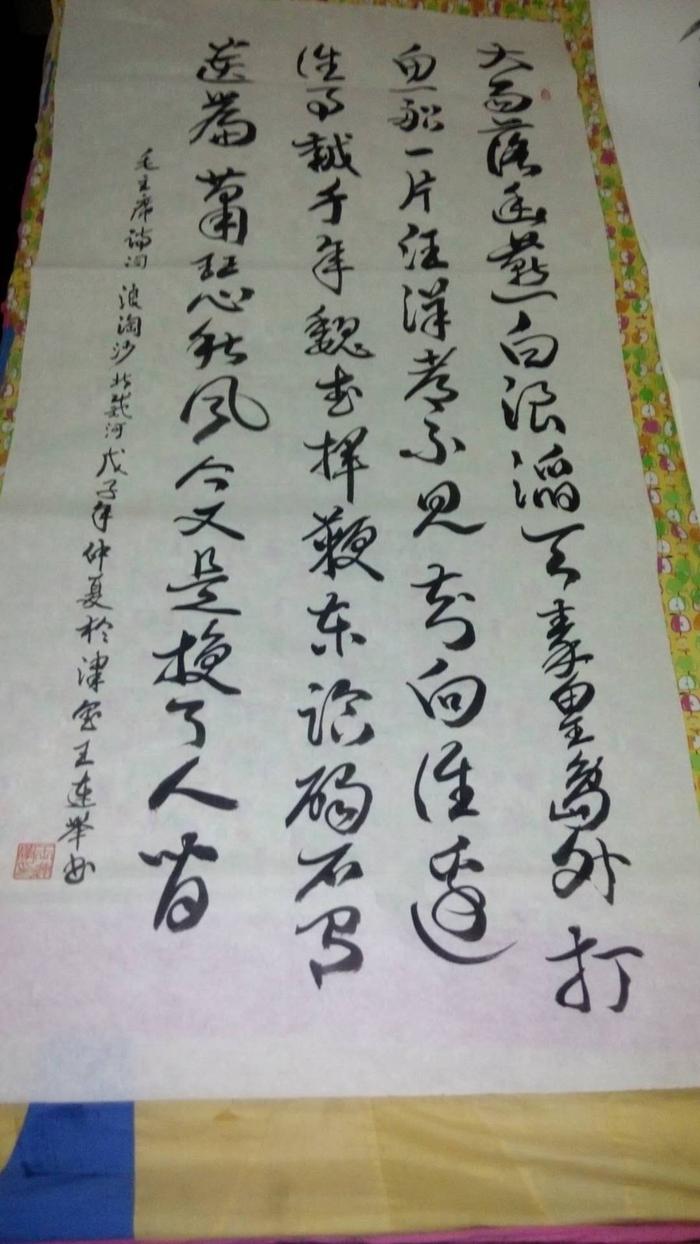 大雨落幽燕白浪滔天秦皇島外打
鱼船一片汪洋都不见知向谁边
往事越千年魏武挥鞭东临碣石有
遗篇蕭瑟秋风今又是换了人间
毛主席诗词浪淘沙北戴河戊子年仲夏於津王连举书